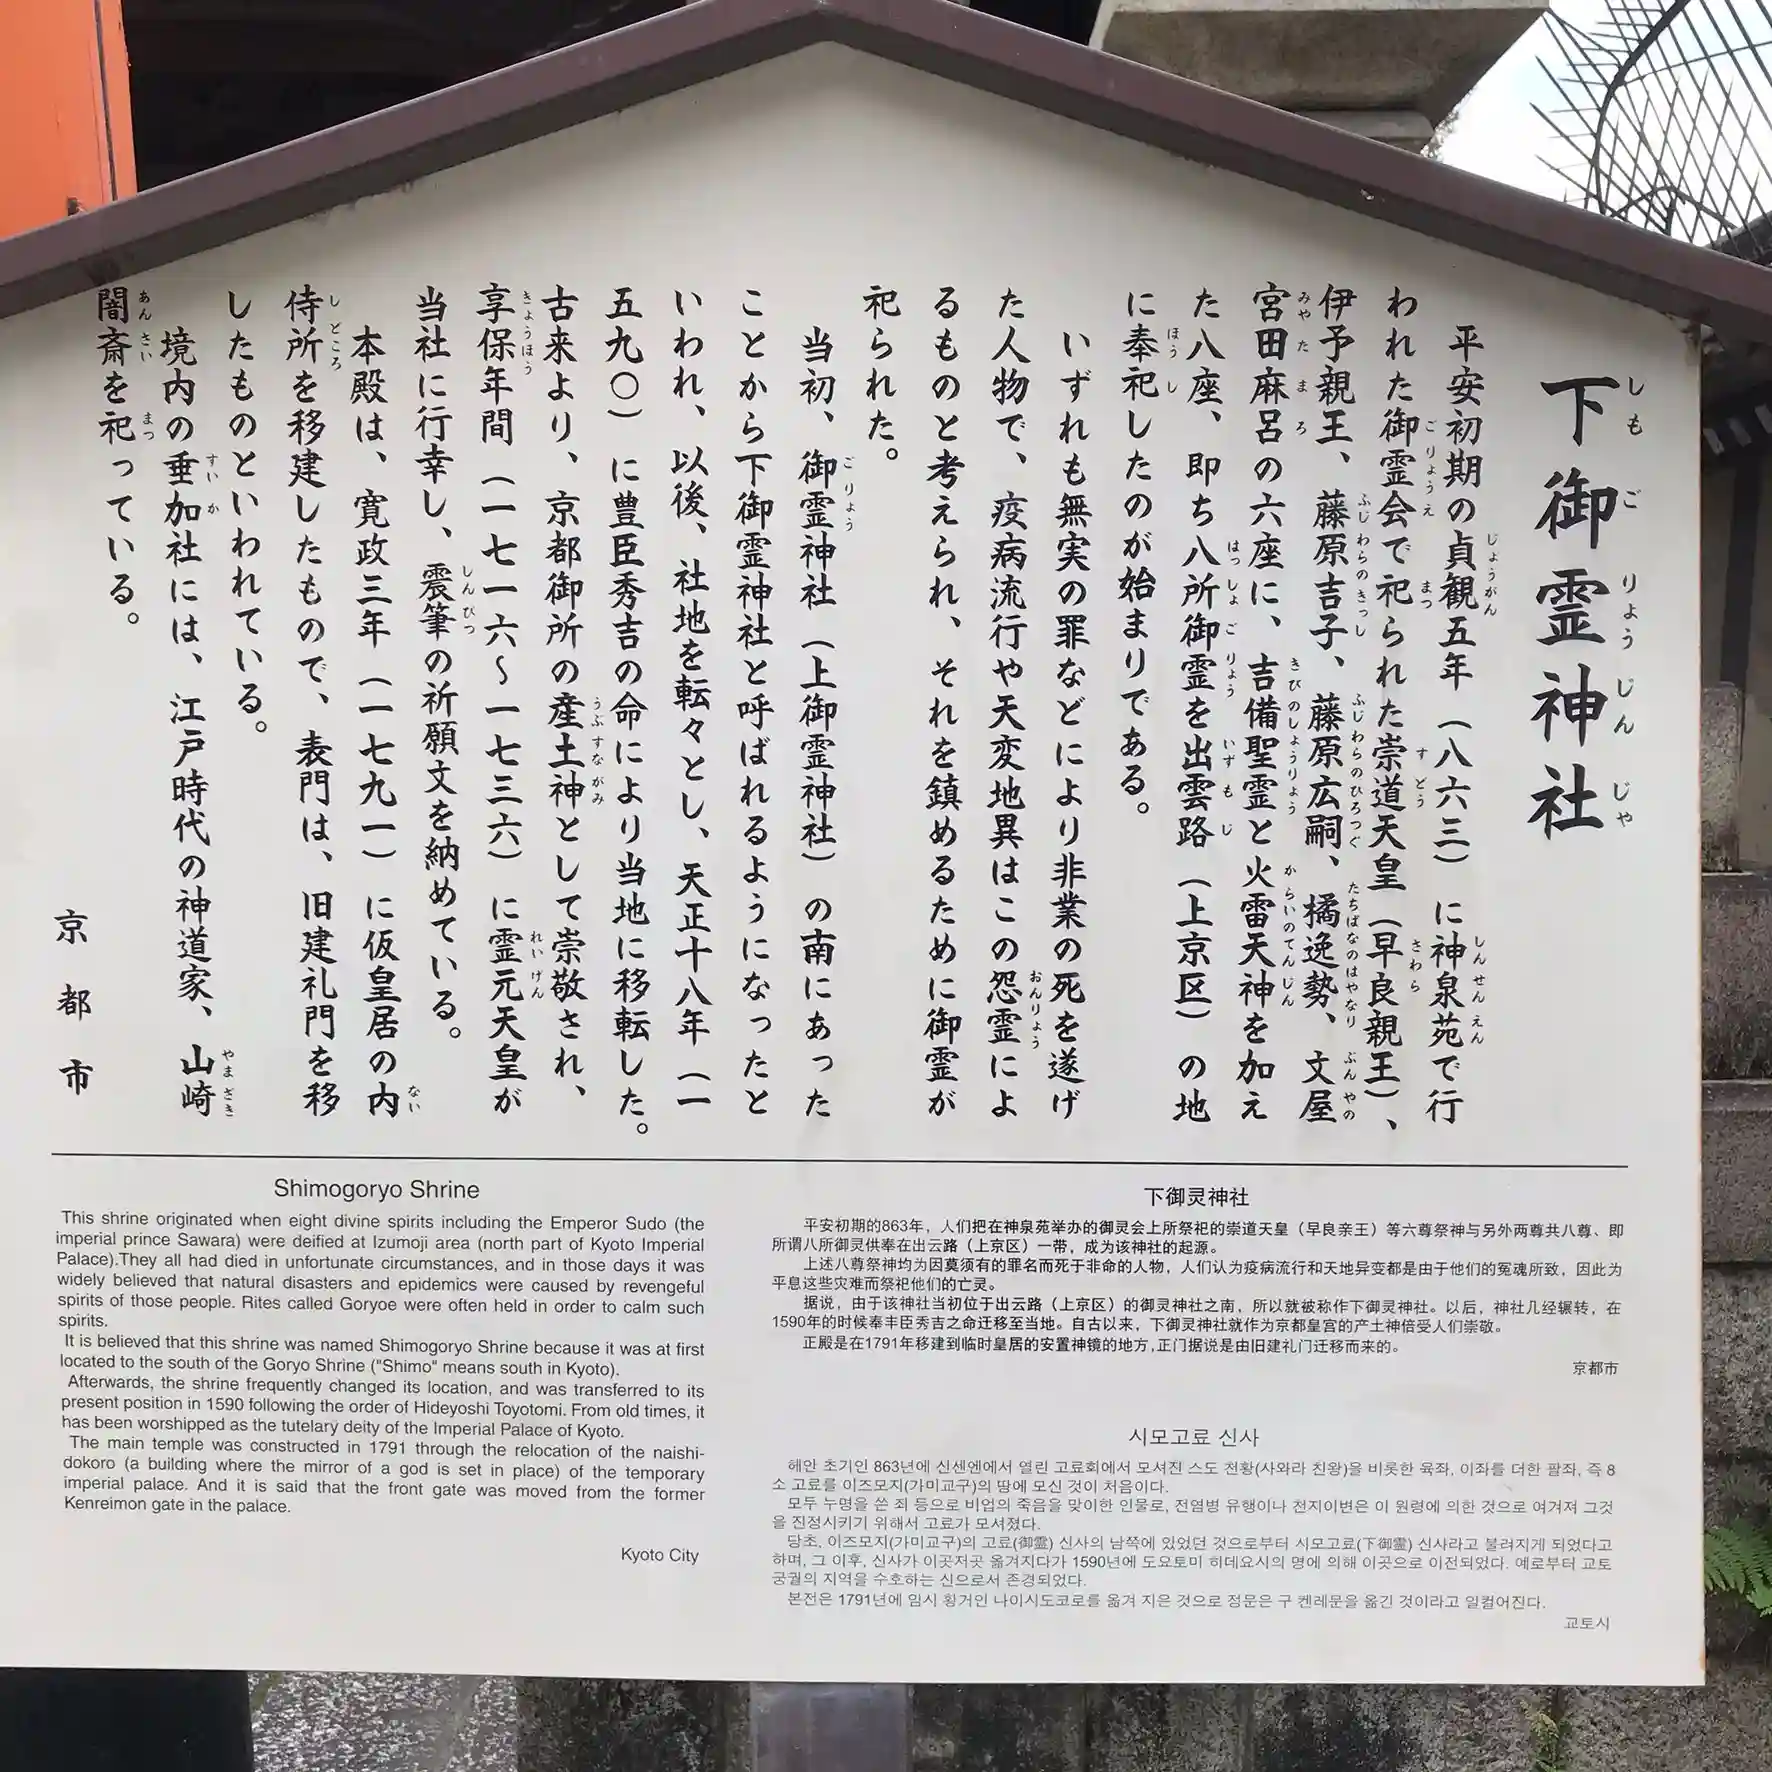 下御霊神社
しもごりょうじんじゃ
平安初期の貞観五年（八六三）に神泉苑で行
じょうがん しんせんえん
われた御霊会で祀られた崇道天皇（早良親王）、
ごりょうえ まつ すどう さわら
伊予親王、藤原吉子、藤原広嗣、橘逸勢、文屋
ふじわらのきっし ふじわらのひろつぐ たちばなのはやなり ぶんやの
宮田麻呂の六座に、吉備聖霊と火雷天神を加え
みやたまろ きびのしょうりょう からいのてんじん
た八座、即ち八所御霊を出雲路（上京区）の地
はっしょごりょう いずもじ
に奉祀したのが始まりである。
ほうし
いずれも無実の罪などにより非業の死を遂げ
た人物で、疫病流行や天変地異はこの怨霊によ
おんりょう
るものと考えられ、それを鎮めるために御霊が
祀られた。
当初、御霊神社（上御霊神社）の南にあった
ごりょう
ことから下御霊神社と呼ばれるようになったと
いわれ、以後、社地を転々とし、天正十八年（一
五九〇）に豊臣秀吉の命により当地に移転した。
古来より、京都御所の産土神として崇敬され、
うぶすながみ
享保年間（一七一六～一七三六）に霊元天皇が
きょうほう れいげん
当社に行幸し、震筆の祈願文を納めている。
しんぴつ
本殿は、寛政三年（一七九一）に仮皇居の内
ない
侍所を移建したもので、表門は、旧建礼門を移
しどころ
したものといわれている。
境内の垂加社には、江戸時代の神道家、山崎
すいか やまざき
闇斎を祀っている。
あんさい まつ
京都市
Shimogoryo Shrine
This shrine originated when eight divine spirits including the Emperor Sudo (the
imperial prince Sawara) were deified at Izumoji area (north part of Kyoto Imperial
Palace).They all had died in unfortunate circumstances, and in those days it was
widely believed that natural disasters and epidemics were caused by revengeful
spirits of those people. Rites called Goryoe were often held in order to calm such
spirits.
It is believed that this shrine was named Shimogoryo Shrine because it was at first
located to the south of the Goryo Shrine ("Shimo" means south in Kyoto).
Afterwards, the shrine frequently changed its location, and was transferred to its
present position in 1590 following the order of Hideyoshi Toyotomi. From old times, it
has been worshipped as the tutelary deity of the Imperial Palace of Kyoto.
The main temple was constructed in 1791 through the relocation of the naishi-
dokoro (a building where the mirror of a god is set in place) of the temporary
imperial palace. And it is said that the front gate was moved from the former
Kenreimon gate in the palace.
Kyoto City
下御灵神社
平安初期的863年，人们把在神泉苑举办的御灵会上所祭祀的崇道天皇（早良亲王）等六尊祭神与另外两尊共八尊、即
所谓八所御灵供奉在出云路（上京区）一带，成为该神社的起源。
上述八尊祭神均为因莫须有的罪名而死于非命的人物，人们认为疫病流行和天地异变都是由于他们的冤魂所致，因此为
平息这些灾难而祭祀他们的亡灵。
据说，由于该神社当初位于出云路（上京区）的御灵神社之南，所以就被称作下御灵神社。以后，神社几经辗转，在
1590年的时候奉丰臣秀吉之命迁移至当地。自古以来，下御灵神社就作为京都皇宫的产土神倍受人们崇敬。
正殿是在1791年移建到临时皇居的安置神镜的地方,正门据说是由旧建礼门迁移而来的。
京都市
시모고료 신사
헤안 초기인 863년에 신센엔에서 열린 고료회에서 모셔진 스도 천황(사와라 친왕)을 비롯한 육좌, 이좌를 더한 팔좌, 즉 8
소 고료를 이즈모지(가미교구)의 땅에 모신 것이 처음이다.
모두 누명을 쓴 죄 등으로 비업의 죽음을 맞이한 인물로, 전염병 유행이나 천지이변은 이 원령에 의한 것으로 여겨져 그것
을 진정시키기 위해서 고료가 모셔졌다.
당초, 이즈모지(가미교구)의 고료(御霊) 신사의 남쪽에 있었던 것으로부터 시모고료(下御霊) 신사라고 불려지게 되었다고
하며, 그 이후, 신사가 이곳저곳 옮겨지다가 1590년에 도요토미 히데요시의 명에 의해 이곳으로 이전되었다. 예로부터 교토
궁궐의 지역을 수호하는 신으로서 존경되었다.
본전은 1791년에 임시 황거인 나이시도코로를 옮겨 지은 것으로 정문은 구 켄레문을 옮긴 것이라고 일컬어진다.
교토시